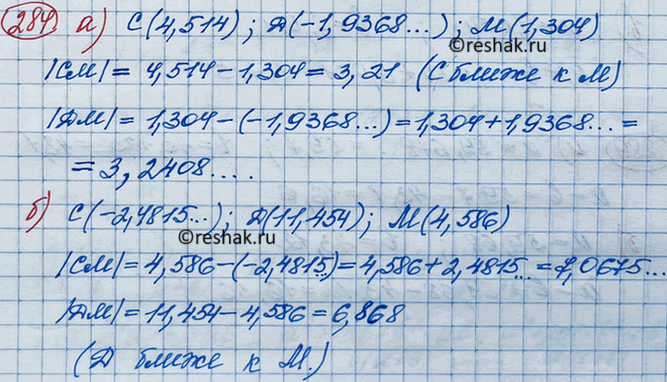 284 а) С(4,514); Д(-1,9368...); М(1,304)
©reshak.ru
|СМ| = 4,514 - 1,304 = 3,21 (С ближе к М)
|ДМ| = 1,304 - (-1,9368...) = 1,304 + 1,9368... =
= 3,2408....
б) С(-2,4815...); Д(11,454); М(4,586)
©reshak.ru
|СМ| = 4,586 - (-2,4815...) = 4,586 + 2,4815... = 7,0675...
|ДМ| = 11,454 - 4,586 = 6,868
(Д ближе к М.)